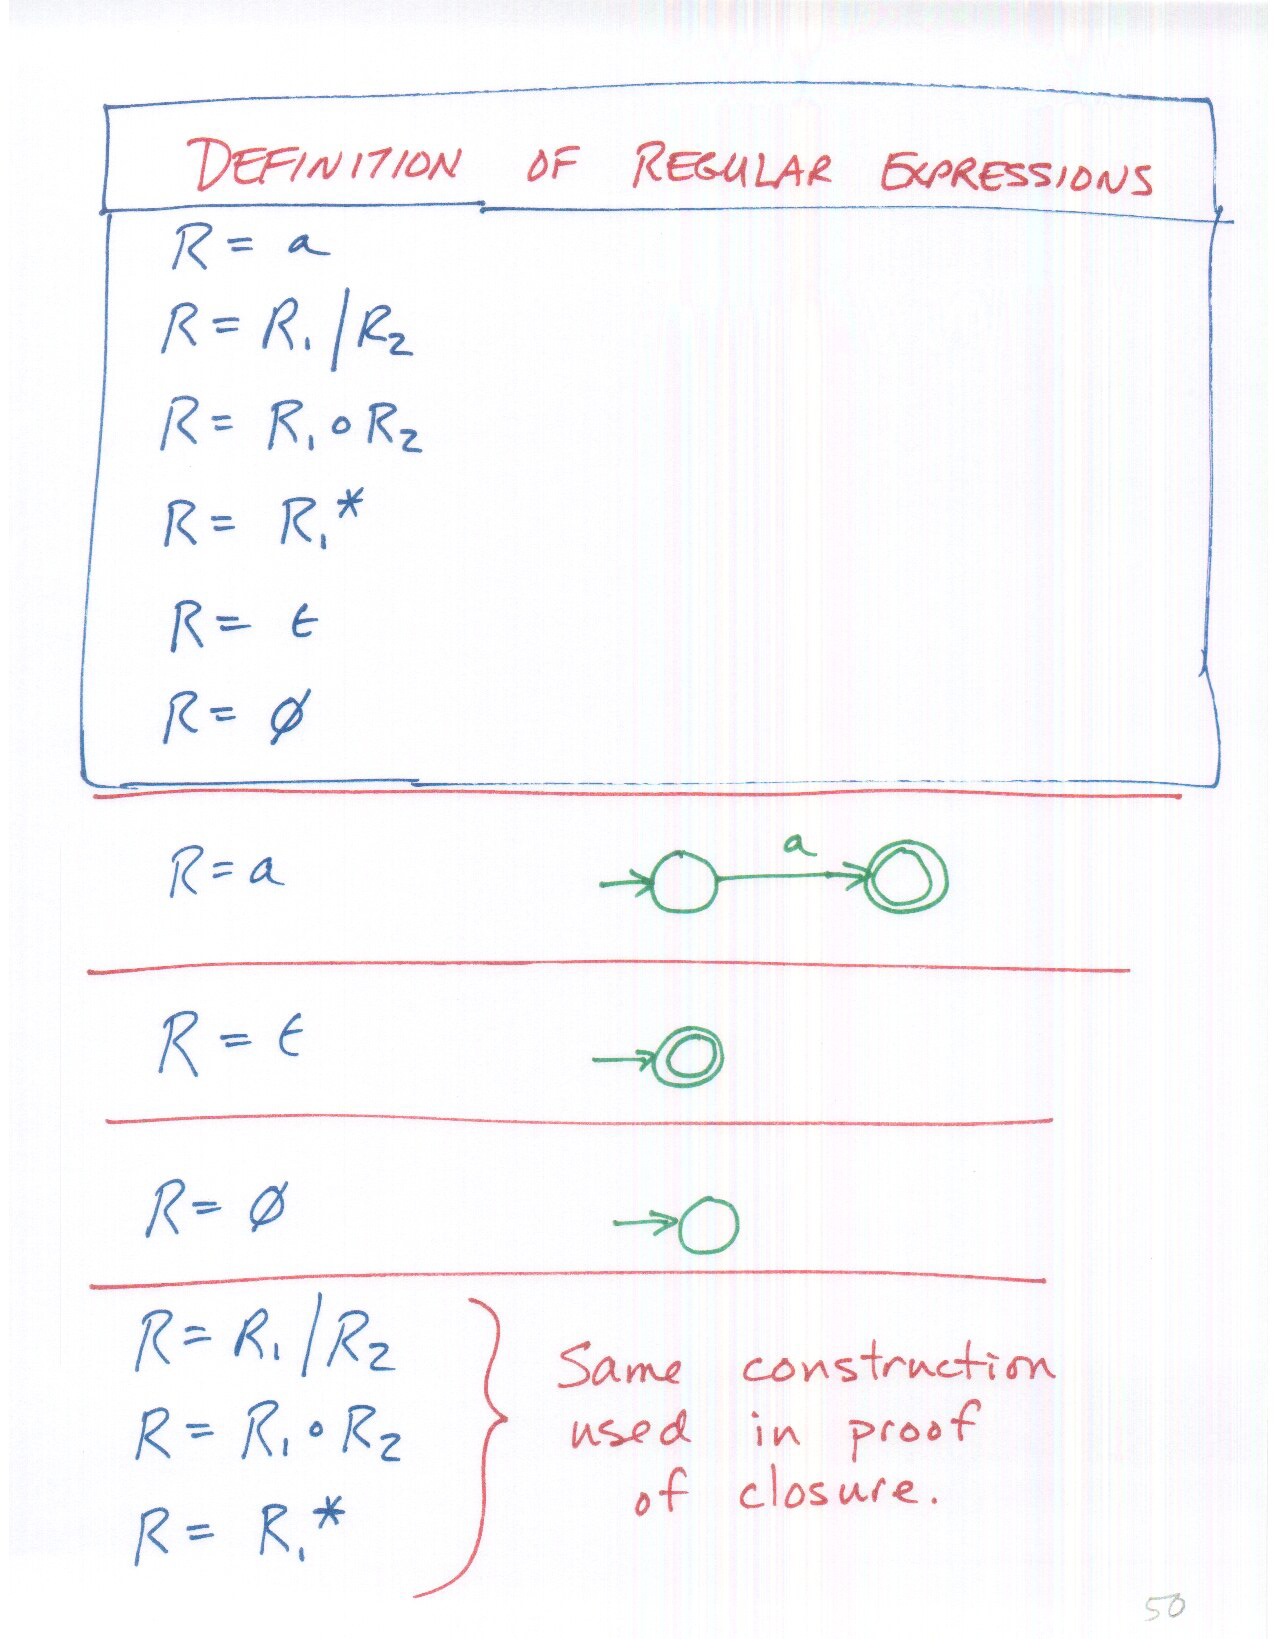 DEFINITION OF REGULAR EXPRESSIONS
R = a
R = R₁ | R₂
R = R₁ ∘ R₂
R = R₁*
R = ε
R = ∅
R = a
a
R = ε
R = ∅
R = R₁ | R₂
R = R₁ ∘ R₂
R = R₁*
Same construction
used in proof
of closure.
50